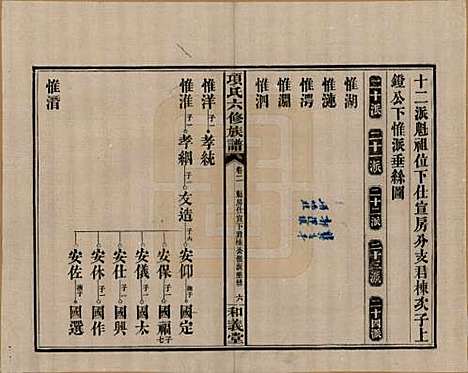 十二派魁祖位下仕宣房分支君棟次子上
鐙公下惟派垂絲圖
二十派 二十一派 二十二派 二十三派 二十四派
惟湖
惟漣
惟渭
惟淵
惟泗
項氏六修族譜 卷二 魁房仕宣下君棟 六 和義堂
惟洋 子一 孝統
惟淮 子一 孝綱 子一 文造 子六 安仰 撫子 國定
安保 子二 國福 子七
安儀 子一 國太
安仕 子一 國興
安休 子一 國作
安佐 撫子 國選
惟濸